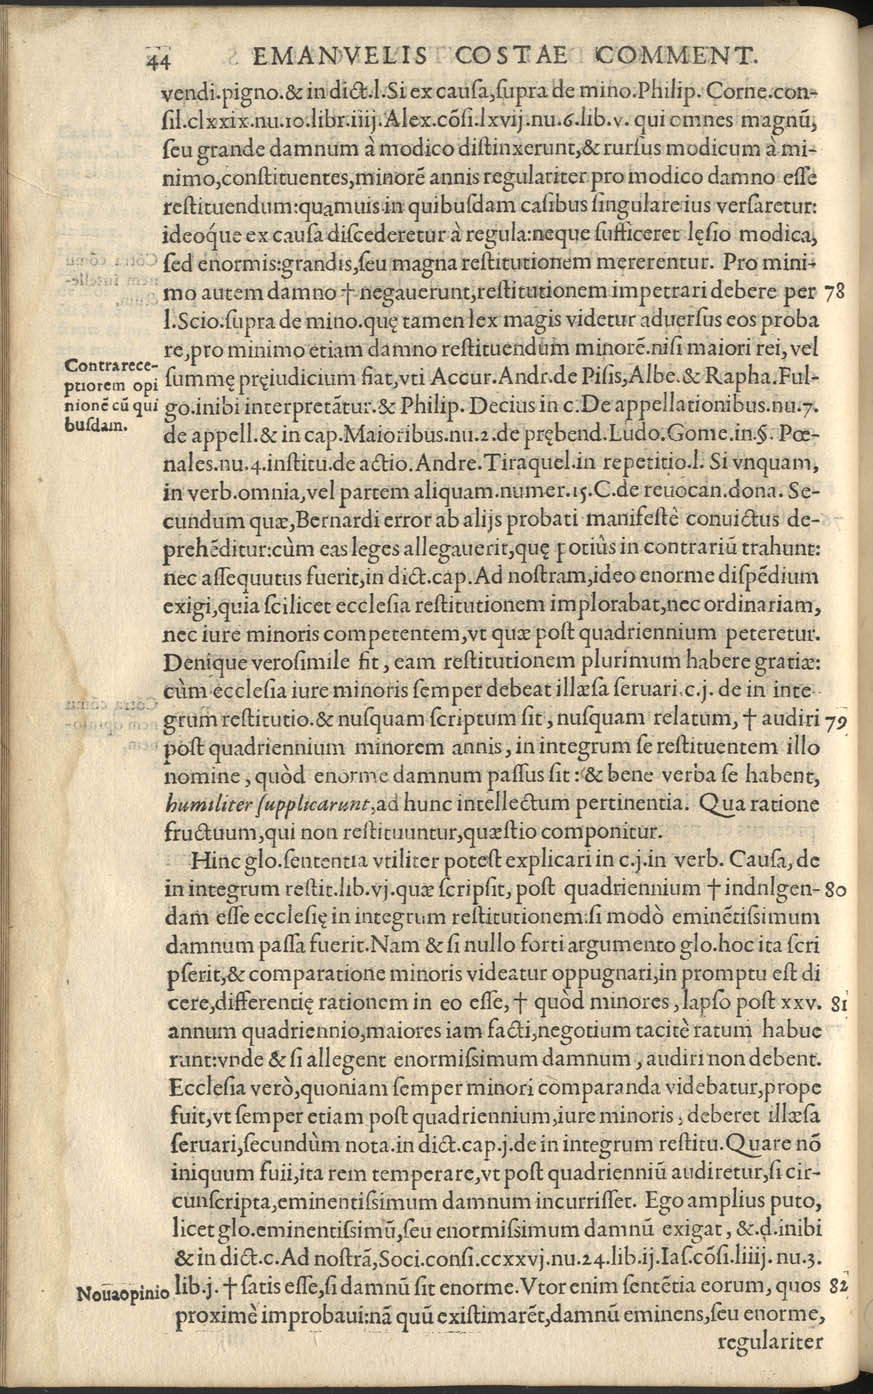 44 EMANVELIS COSTAE COMMENT.
vendi.pigno.& in dict.l.Si ex cauſa,ſupra de mino.Philip. Corne.con-
ſil.clxxix.nu.10.libr.iiij.Alex.cõſi.lxvij.nu.6.lib.v. qui omnes magnũ,
ſeu grande damnum à modico diſtinxerunt,& rurſus modicum à mi-
nimo,conſtituentes,minorẽ annis regulariter pro modico damno eſſe
reſtituendum:quamuis in quibuſdam caſibus ſingulare ius verſaretur:
ideoq́ue ex cauſa diſcederetur à regula:neque ſufficeret lęſio modica,
ſed enormis:grandis,ſeu magna reſtitutionem mererentur. Pro mini-
mo autem damno † negauerunt,reſtitutionem impetrari debere per 78
l.Scio.ſupra de mino.quę tamen lex magis videtur aduerſus eos proba
re,pro minimo etiam damno reſtituendum minorẽ.niſi maiori rei, vel
Contra rece-
ptiorem opi
nionẽ cũ qui
buſdam.
ſummę pręiudicium fiat,vti Accur.Andr.de Piſis,Albe.& Rapha.Ful-
go.inibi interpretãtur.& Philip. Decius in c.De appellationibus.nu.7.
de appell.& in cap.Maioribus.nu.2.de prębend.Ludo.Gome.in.§. Pœ-
nales.nu.4.inſtitu.de actio.Andre.Tiraquel.in repetitio.l. Si vnquam,
in verb.omnia,vel partem aliquam.numer.15.C.de reuocan.dona. Se-
cundum quæ,Bernardi error ab alijs probati manifeſtè conuictus de-
prehẽditur:cùm eas leges allegauerit,quę potiùs in contrariũ trahunt:
nec aſſequutus fuerit,in dict.cap.Ad noſtram,ideo enorme diſpẽdium
exigi,quia ſcilicet eccleſia reſtitutionem implorabat,nec ordinariam,
nec iure minoris competentem,vt quæ poſt quadriennium peteretur.
Denique veroſimile fit, eam reſtitutionem plurimum habere gratiæ:
cùm eccleſia iure minoris ſemper debeat illæſa ſeruari.c.j. de in inte-
grum reſtitutio.& nuſquam ſcriptum ſit, nuſquam relatum, † audiri 79
poſt quadriennium minorem annis, in integrum ſe reſtituentem illo
nomine, quòd enorme damnum paſſus ſit : & bene verba ſe habent,
humiliter ſupplicarunt,ad hunc intellectum pertinentia. Qua ratione
fructuum,qui non reſtituuntur,quæſtio componitur.
Hinc glo.ſententia vtiliter poteſt explicari in c.j.in verb. Cauſa, de
in integrum reſtit.lib.vj.quæ ſcripſit, poſt quadriennium † indnlgen- 80
dam eſſe eccleſię in integrum reſtitutionem:ſi modò eminẽtiſsimum
damnum paſſa fuerit.Nam & ſi nullo forti argumento glo.hoc ita ſcri
pſerit,& comparatione minoris videatur oppugnari,in promptu eſt di
cere,differentię rationem in eo eſſe, † quòd minores, lapſo poſt xxv. 81
annum quadriennio,maiores iam facti,negotium tacitè ratum habue
runt:vnde & ſi allegent enormiſsimum damnum, audiri non debent.
Eccleſia verò,quoniam ſemper minori comparanda videbatur,prope
fuit,vt ſemper etiam poſt quadriennium,iure minoris, deberet illæſa
ſeruari,ſecundùm nota.in dict.cap.j.de in integrum reſtitu.Quare nõ
iniquum fuii,ita rem temperare,vt poſt quadrienniũ audiretur,ſi cir-
cunſcripta,eminentiſsimum damnum incurriſſet. Ego amplius puto,
licet glo.eminentiſsimũ,ſeu enormiſsimum damnũ exigat, &.d.inibi
& in dict.c.Ad noſtrã,Soci.conſi.ccxxvj.nu.24.lib.ij.Iaſ.cõſi.liiij. nu.3.
Noua opinio lib.j. † ſatis eſſe,ſi damnũ ſit enorme.Vtor enim ſentẽtia eorum, quos 82
proximè improbaui:nã quũ exiſtimarẽt,damnũ eminens,ſeu enorme,
regulariter